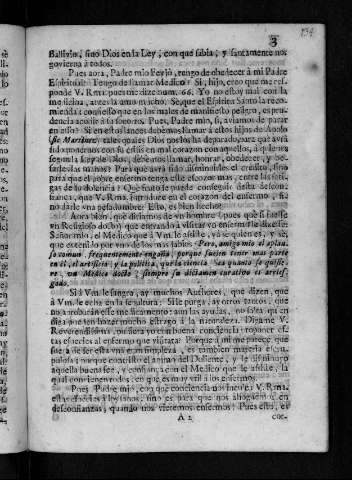 3
Ballizio, sino Dios en la Ley, con que sabia, y santamente nos
govierna à todos.
Pues aora, Padre mio Ferjò, tengo de obedecer à mi Padre
Espiritual: Tengo de llamar Medico? Si, hijo, creo que me res-
ponde V. Rma. pues me dize num. 66. Yo no estoy mal con la
medicina, antes la amo mucho. Sè, que el Espiritu Santo la reco-
mienda: confiesso que en los males de manifiesto peligro, es pru-
dencia acudir à su socorro. Pues, Padre mio, si, aviamos de parar
en esso? Si en estos lances debemos llamar à estos hijos de Apolo
sic Martinez, tales quales Dios nos los ha deparado, para què avrà
sido ponernos con si estais en mal corazon con aquellos, à quienes
segun la Ley de Dios, debemos llamar, honrar, obedecer, y be-
sarles las manos? Para què avrà sido disminuirles el credito, sino
para que el pobre enfermo tenga este escozor mas, entre las fati-
gas de su dolencia? Què fruto se puede conseguir desta descon-
fianza, que V. Rma. introduce en el corazon del enfermo, sino
no darle una pesadumbre? Esto, es bien hecho?
Aora bien, què diriamos de un hombre (pues què si fuesse
un Religioso docto) que entrando à visitar un enfermo le dixesse:
Señor mio, el Medico que à Vm. le assiste, yà veo, que es, y se
que es tenido por uno de los mas sabios: Pero, amigo mio el aplau-
so comun frequentemente engaña, porque suelen tener mas parte
en èl, el artificio, y la politica, que la ciencia: Sea quanto se quisie-
re, un Medico docto; siempre su dictamen curativo es arries-
gado.
Si à Vm. le sangra, ay muchos Authores, que dizen, que
à Vm. le echa en la sepultura: Si le purga, ay otros tantos, que
no aprobaràn esse medicamento: aun las ayudas, no falta quien
diga que han hazer mucho estrago à la naturaleza. Digame V.
Reverendissima, pudiera yo con buena conciencia, proponer es-
tas especies al enfermo que visitara: Porque à mi me parece que
fuera de ser esta una gran simpleza, es tambien materia escru-
pulosa porque concibe el animo del Doliente, y le disminuyo
aquella buena fee, y confianza con el Medico que le assiste, la
qual convienen todos, en que es muy util à los enfermos.
Pues, Padre mio, con què conciencia nos infunde V. Rma.
estas especies à los sanos, sino es para que nos ahoguemos en
desconfianzas, quando nos vieremos enfermos? Pues esto, es
A 2
coc-